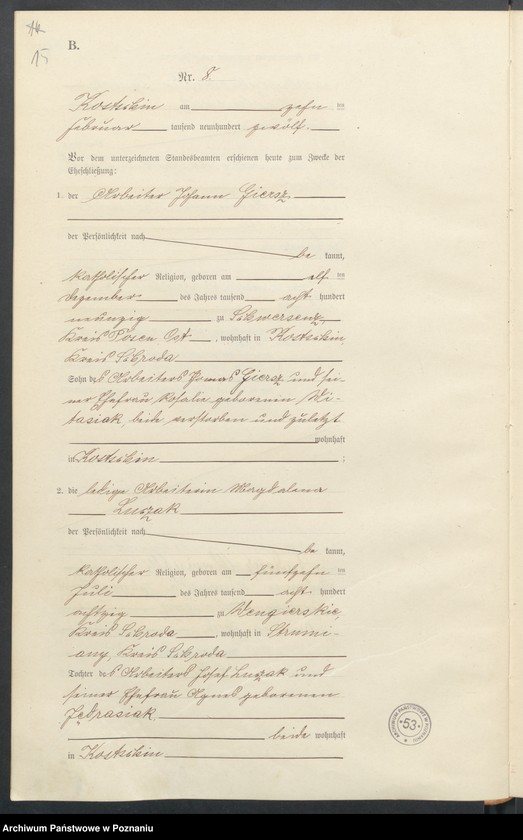 B.
15
Nr. 8.
Kostschin am zehn ten
Februar tausend neunhundert zwölf.
Vor dem unterzeichneten Standesbeamten erschienen heute zum Zwecke der
Eheschließung:
1. der Arbeiter Johann Giersz
der Persönlichkeit nach
be kannt,
katholischer Religion, geboren am elf ten
Dezember des Jahres tausend acht hundert
neunzig zu Schwersenz,
Kreis Posen Ost, wohnhaft in Kostschin,
Kreis Schroda
Sohn des Arbeiters Thomas Giersz und sei-
ner Ehefrau Rosalie geborenen Wi-
tasiak, beide verstorben und zuletzt
wohnhaft
in Kostschin ;
2. die ledige Arbeiterin Magdalena
Luszak
der Persönlichkeit nach
be kannt,
katholischer Religion, geboren am fünfzehn ten
Juli des Jahres tausend acht hundert
achtzig zu Wengierskie,
Kreis Schroda, wohnhaft in Strumi-
any, Kreis Schroda
Tochter des Arbeiters Josef Luszak und
seiner Ehefrau Agnes geborenen
Jędrasiak,
beide wohnhaft
in Kostschin
ARCHIWUM PAŃSTWOWE W POZNANIU
53
Archiwum Państwowe w Poznaniu